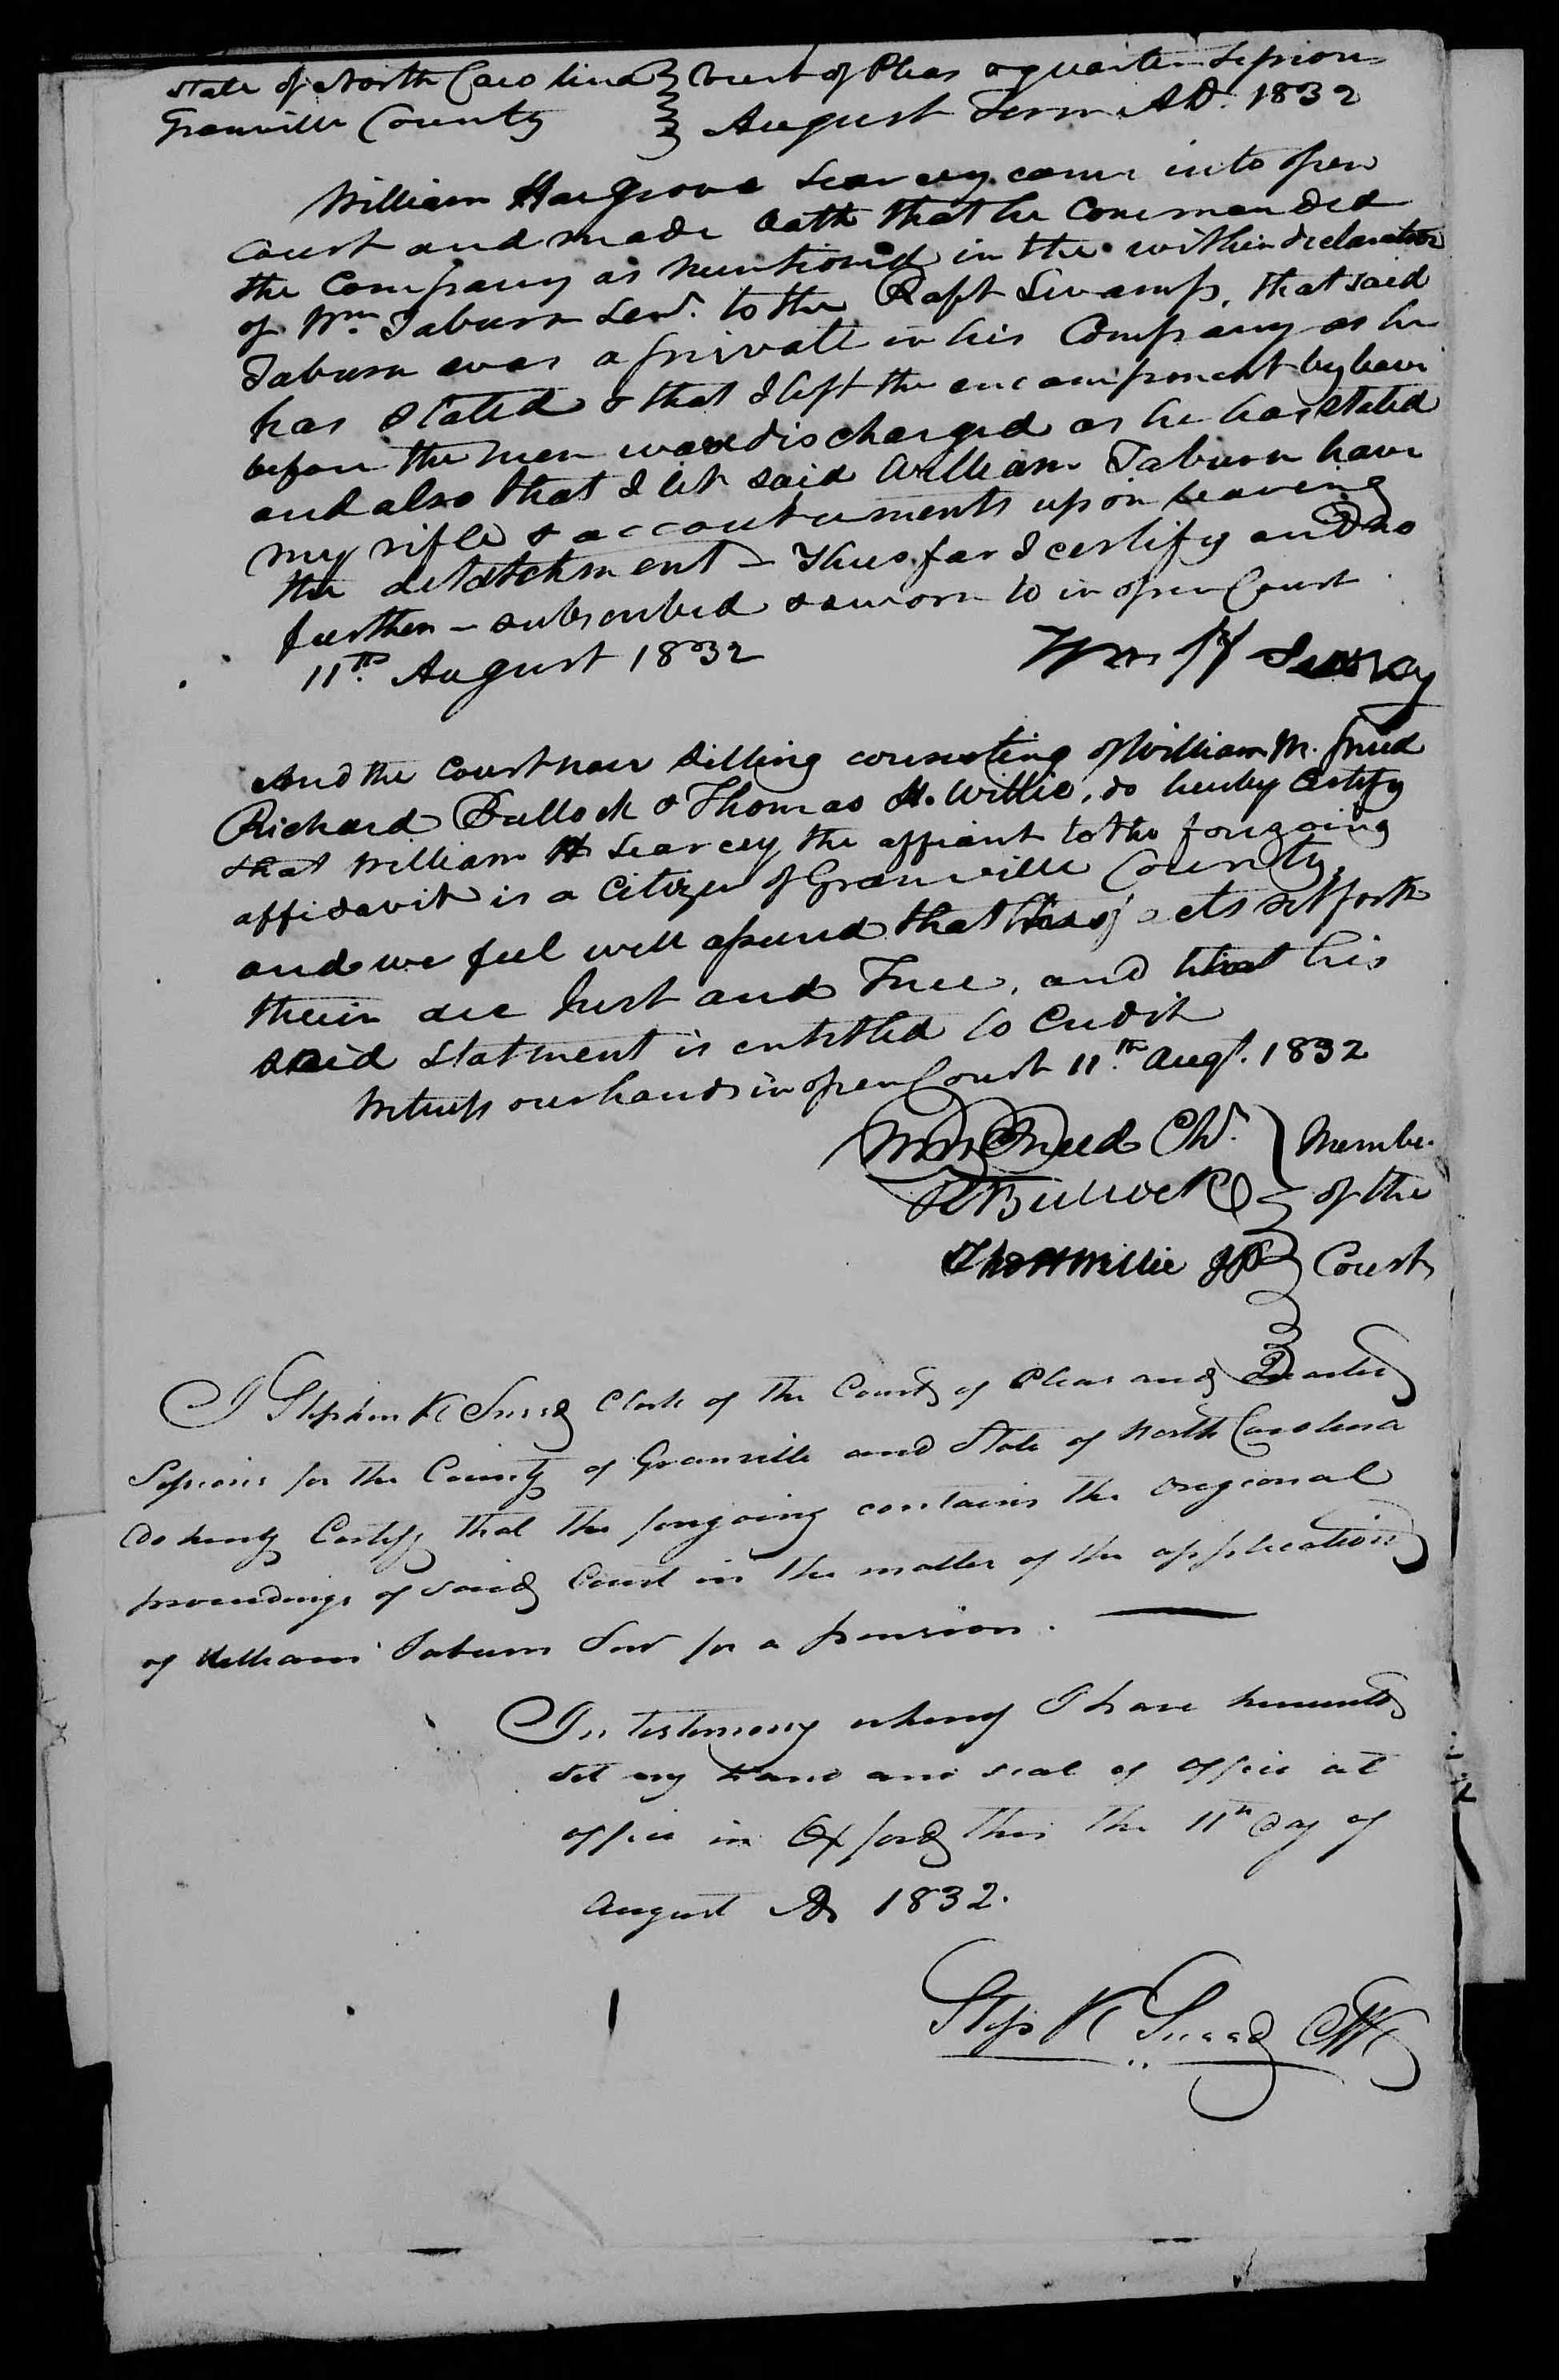 State of North Carolina } Court of Pleas & quarter Sessions
Granville County } August Term AD. 1832
William Hargrove Searcey came into open
Court and made Oath that he Commanded
the Company as mentioned in the within declaration
of Wm. Taburn Senr. to the Raft Swamp, that said
Taburn was a private in his Company as he
has stated & that I left the encampment by leave
before the men was discharged as he has stated
and also that I let said William Taburn have
my rifle & accoutrements upon leaving
the detatchment – Thus far I certify and no
further – subscribed & sworn to in open Court
11th. August 1832 Wm H Searcy
And the Court now sitting consisting of William M. Sneed
Richard Bullock & Thomas H. Willie, do hereby Certify
that William H Searcey the affiant to the foregoing
affidavit is a Citizen of Granville County,
and we feel well assured that the facts set forth
therein are Just and True, and that his
said statment is entitled to Credit
Witness our hands in open Court 11th. Augt. 1832
Wm M Sneed Ch. } Membe
R Bullock } of the
Tho H Willie JP } Court
I Stephen K Sneed Clerk of the Court of Pleas and Quarter
Sessions for the County of Granville and State of North Carolina
do hereby Certify that the forgoing contains the oregional
proceedings of said Court in the matter of the application
of William Taburn Senr for a pension.
In testimony whereof I have hereunto
set my hand and seal of office at
office in Oxford this the 11th day of
August AD 1832.
Step K Sneed Clk